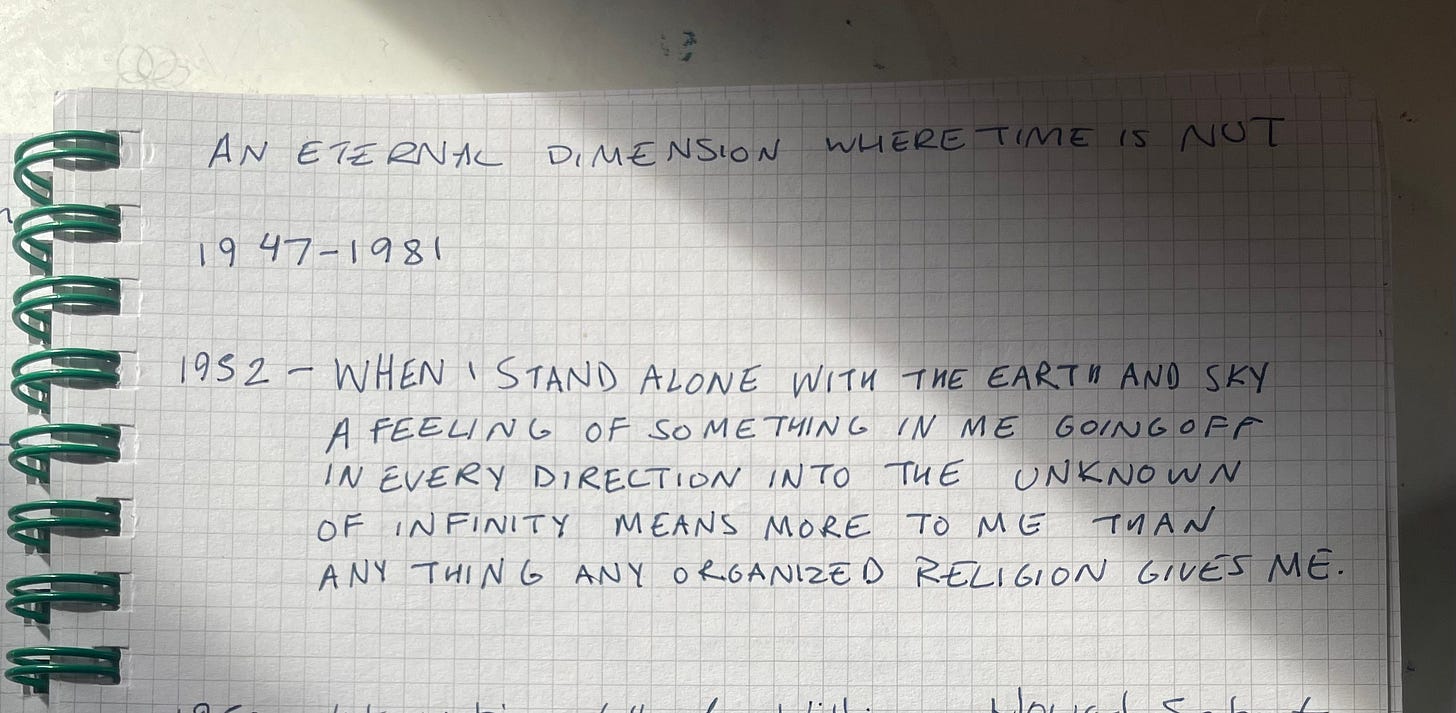 AN ETERNAL DIMENSION WHERE TIME IS NOT
1947-1981
1952 - WHEN I STAND ALONE WITH THE EARTH AND SKY
A FEELING OF SOMETHING IN ME GOING OFF
IN EVERY DIRECTION INTO THE UNKNOWN
OF INFINITY MEANS MORE TO ME THAN
ANY THING ANY ORGANIZED RELIGION GIVES ME.